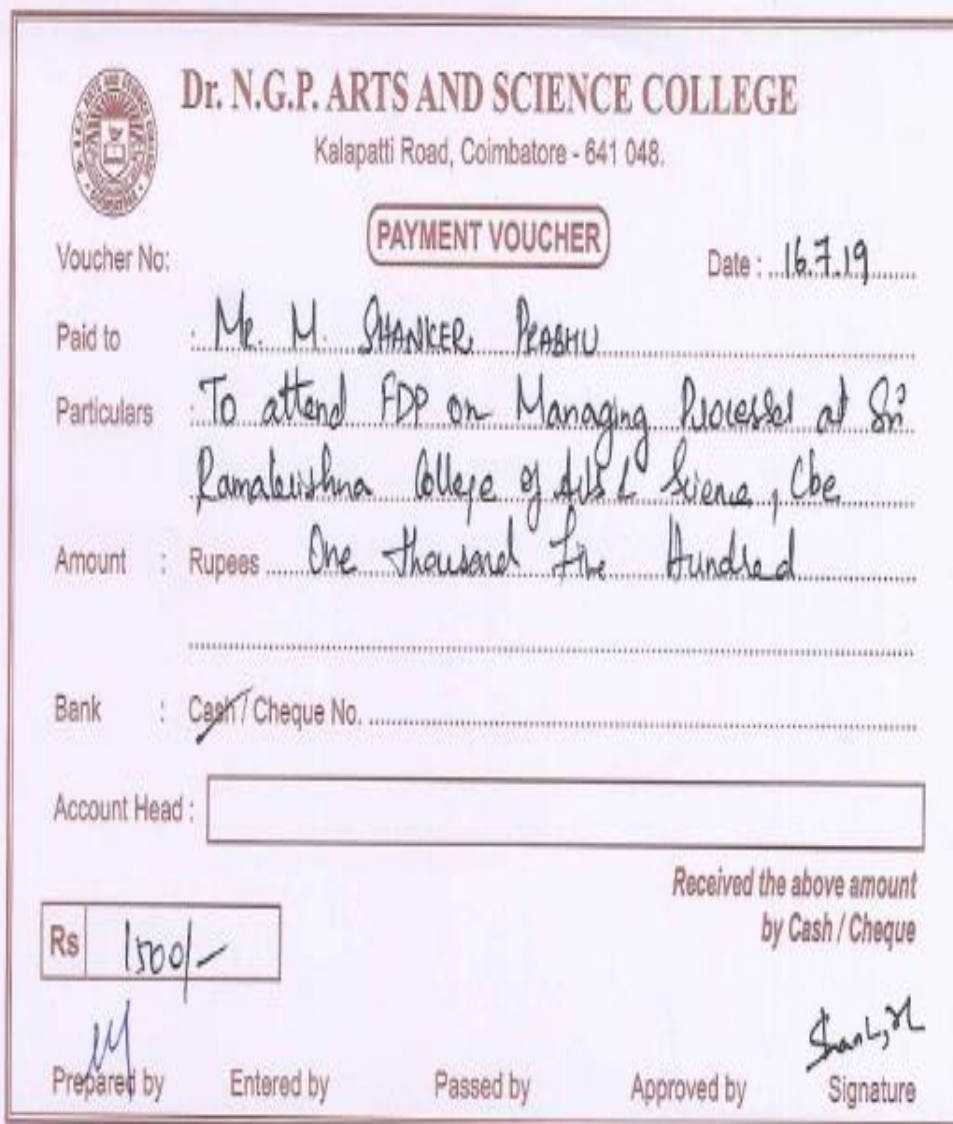 Dr. N.G.P. ARTS AND SCIENCE COLLEGE
Kalapatti Road, Coimbatore - 641 048.
PAYMENT VOUCHER
Voucher No:
Date : 16.7.19
Paid to : Mr. M. SHANKER PRABHU
Particulars : To attend FDP on Managing Processes at Sri
Ramakrishna College of Arts & Science, Cbe
Amount : Rupees One thousand Five Hundred
Bank : Cash / Cheque No.
Account Head :
Received the above amount
by Cash / Cheque
Rs 1500/-
Prepared by Entered by Passed by Approved by Signature